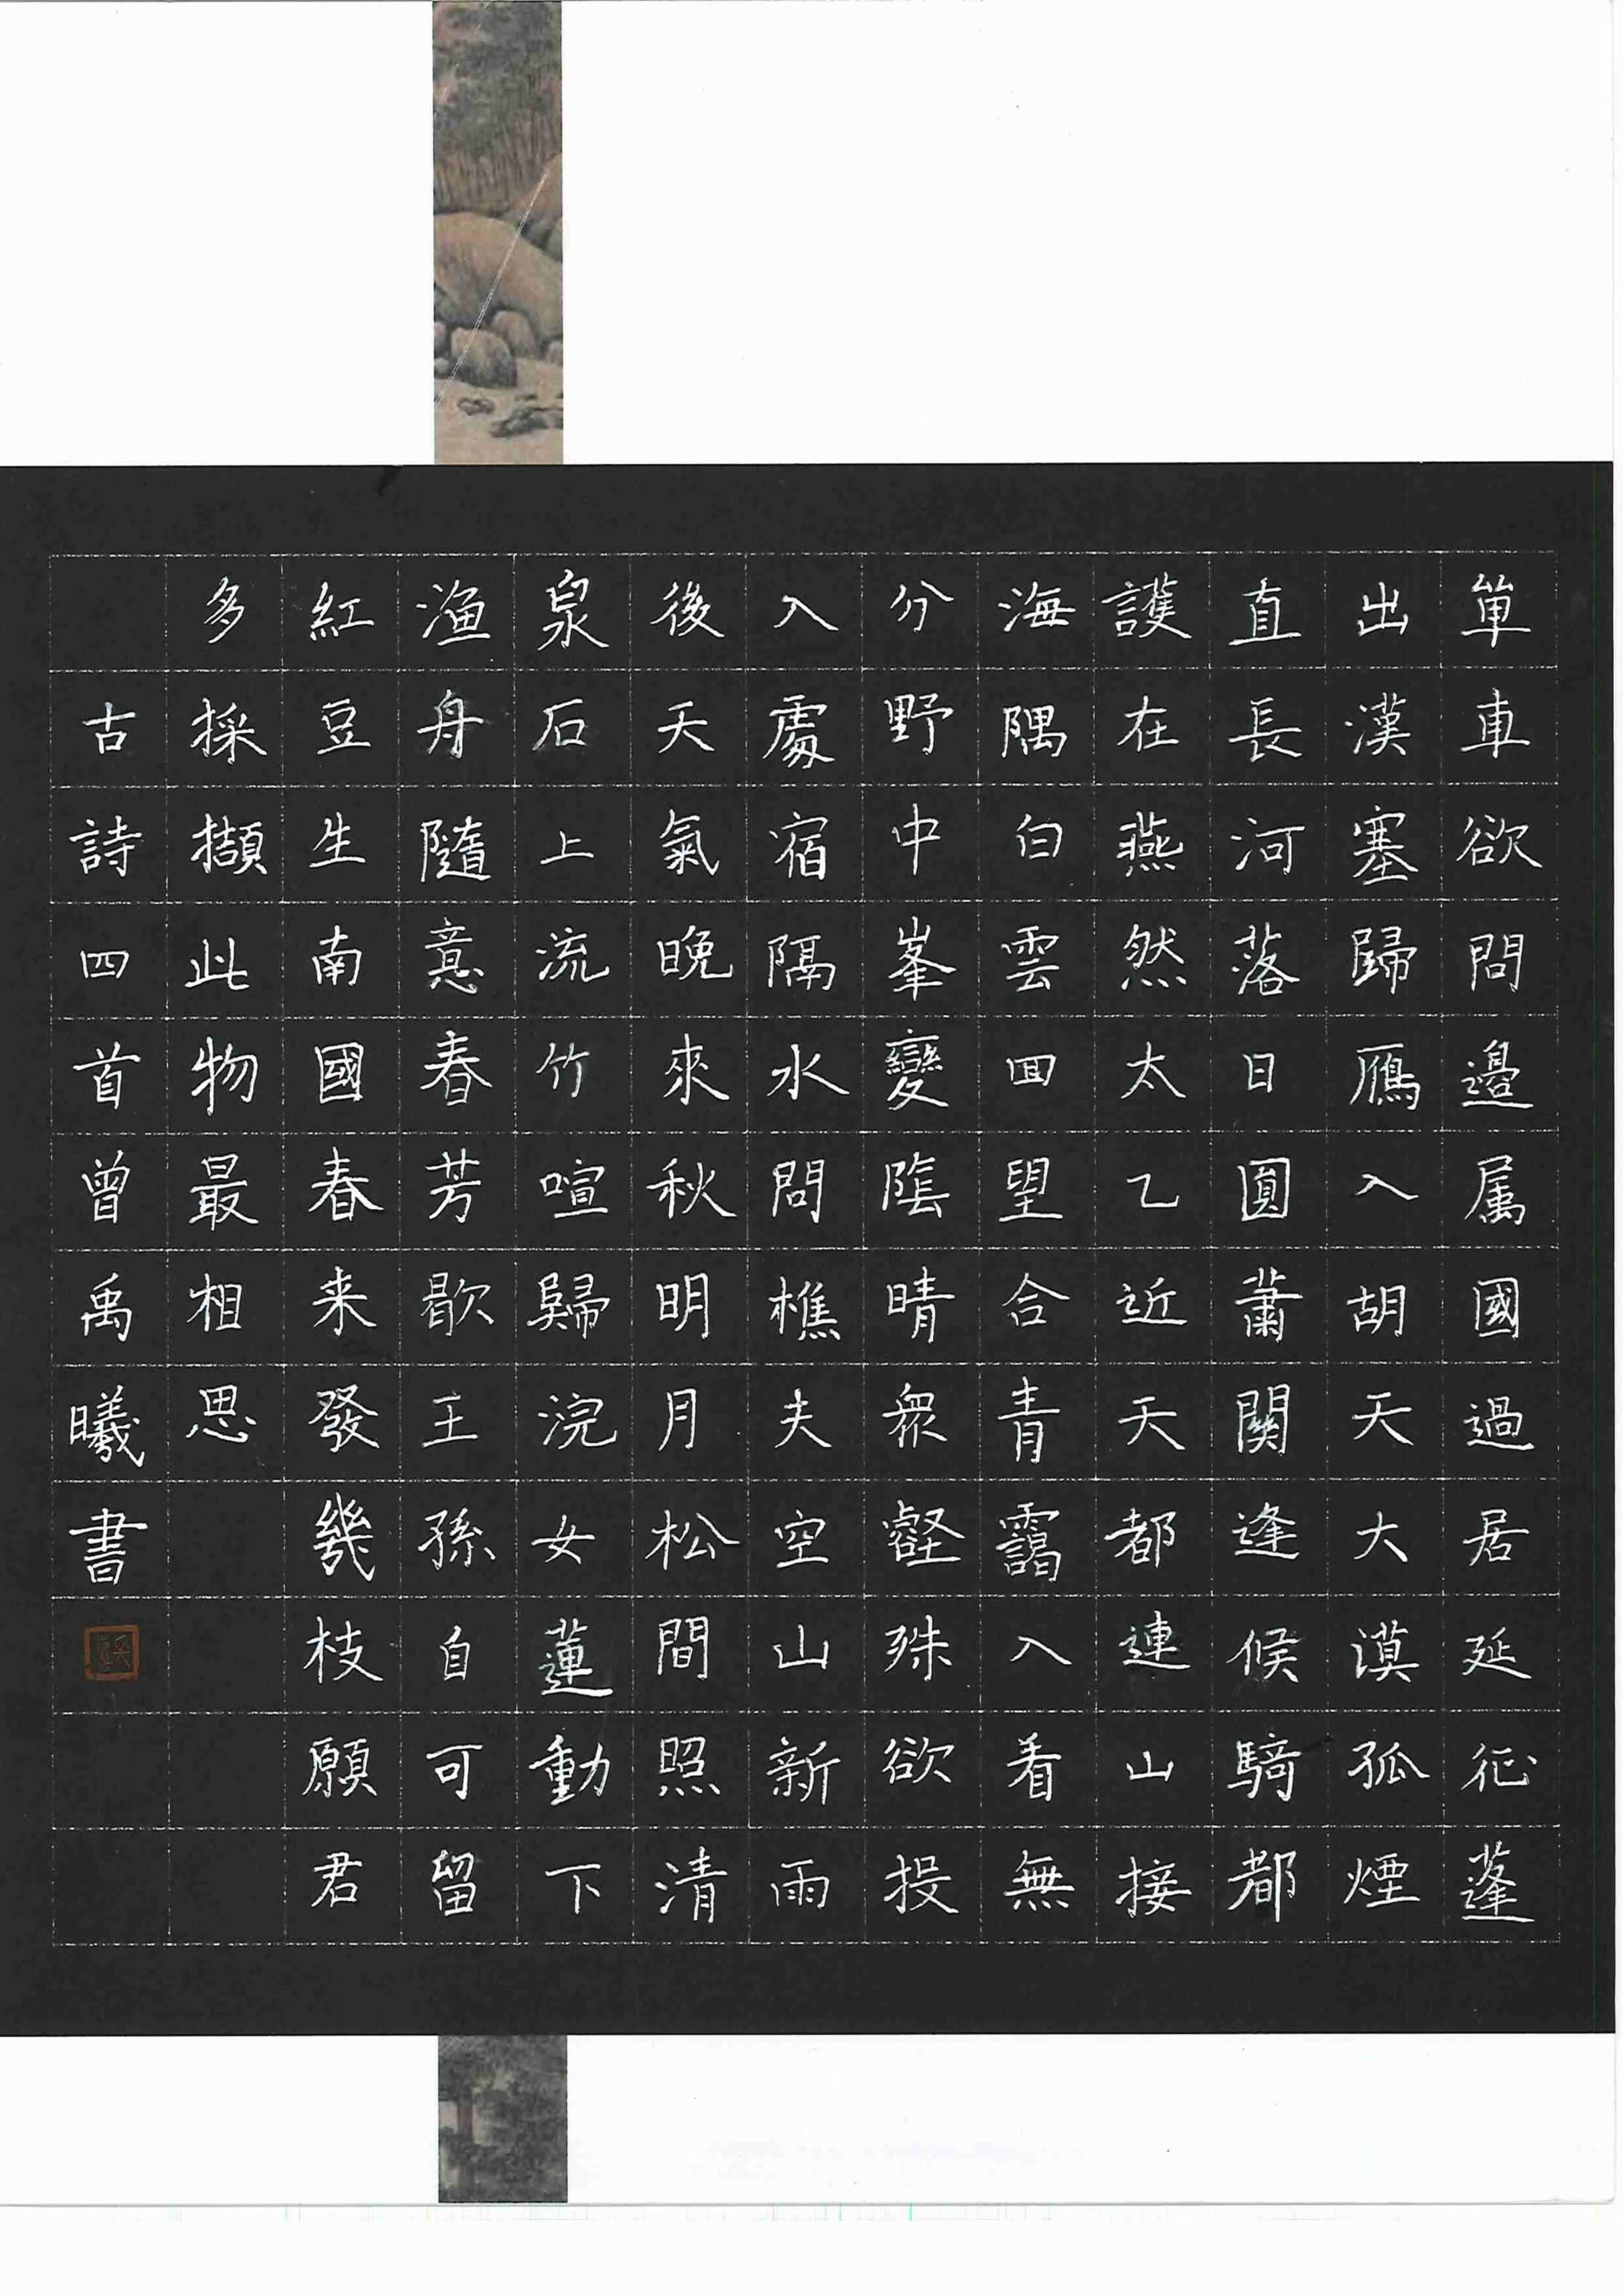 單車欲問邊属國過居延征蓬
出漢塞歸鴈入胡天大漠孤煙
直長河落日圓蕭關逢候騎都
護在燕然太乙近天都連山接
海隅白雲回望合青靄入看無
分野中峯變陰晴衆壑殊欲投
入處宿隔水問樵夫空山新雨
後天氣晚來秋明月松間照清
泉石上流竹喧歸浣女蓮動下
漁舟隨意春芳歇王孫自可留
紅豆生南國春来發幾枝願君
多採擷此物最相思
古詩四首曾禹曦書